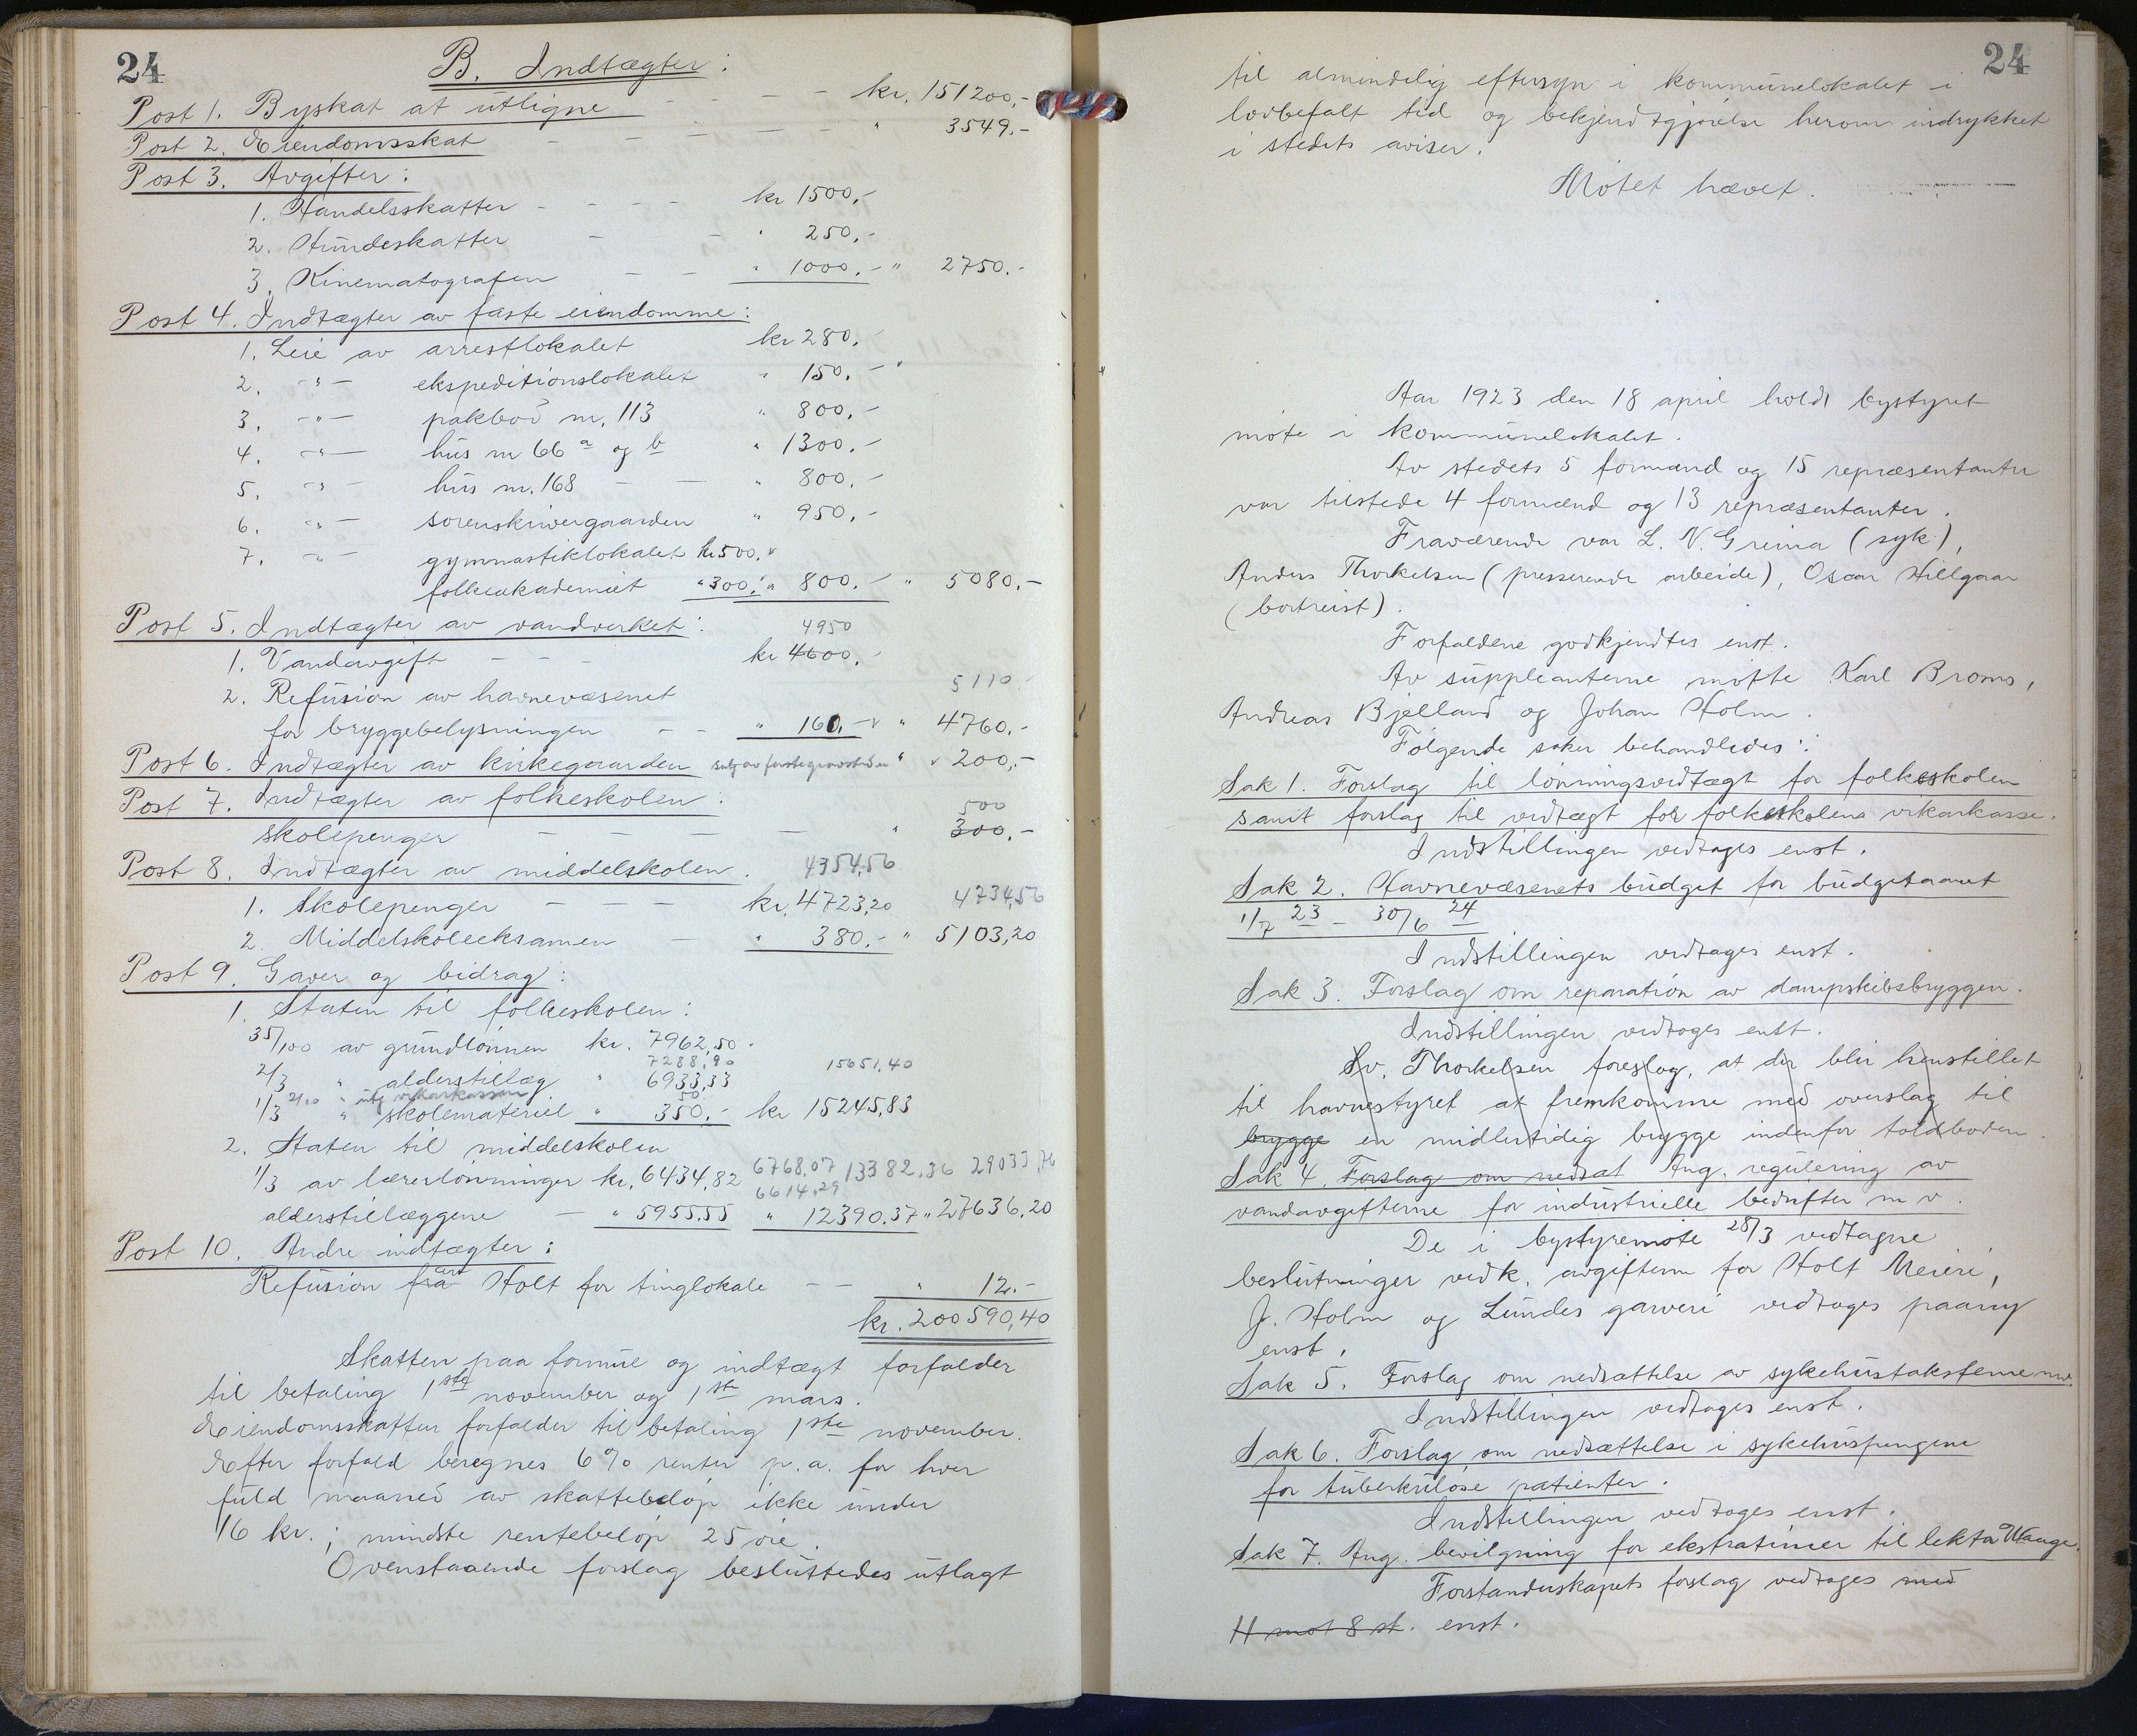 24
B. Indtægter:
Post 1. Byskat at utligne - - - - kr. 151200,-
Post 2. Eiendomsskat - - - - - " 3549.-
Post 3. Avgifter:
1. Handelsskatter - - - - kr 1500,-
2. Hundeskatter - - " 250,-
3. Kinematografen - - " 1000,- " 2750.-
Post 4. Indtægter av faste eiendomme:
1. Leie av arrestlokalet kr 280,-
2. -"- ekspeditionslokalet " 150,-
3. -"- pakbod nr. 113 " 800,-
4. -"- hus nr 66 a og b " 1300,-
5. -"- hus nr. 168 - - " 800,-
6. -"- sorenskrivergaarden " 950,-
7. -"- gymnastiklokalet kr 500,-
folkeakademiet " 300,- " 800,- " 5080,-
Post 5. Indtægter av vandverket:
4950
1. Vandavgift - - - kr 4600,-
2. Refusion av havnevæsenet 5110-
for bryggebelysningen - - " 160,- " 4760.-
Post 6. Indtægter av kirkegaarden salg av " 200,-
Post 7. Indtægter av folkeskolen:
500
skolepenger - - - - " 300,-
Post 8. Indtægter av middelskolen. 4354,56
1. Skolepenger - - - kr. 4723,20 4734,56
2. Middelskoleeksamen - " 380.- " 5103,20
Post 9. Gaver og bidrag:
1. Staten til folkeskolen:
35/100 av grundlønnen kr. 7962,50
7288,90 15651,40
2/3 " alderstillæg " 6933,33
2/10 " utg vikarkassen 50
1/3 " skolemateriel " 350.- kr 15245,83
2. Staten til middelskolen
6768,07 13382,36 29033,76
1/3 av lærerlønninger kr. 6434,82
6614,29
alderstillæggene - " 5955,55 " 12390,37 " 27636,20
Post 10. Andre indtægter:
Refusion fra Holt for tinglokale - - " 12.-
kr. 200590,40
Skatten paa formue og indtægt forfalder
til betaling 1ste november og 1ste mars.
Eiendomsskatten forfalder til betaling 1ste november.
Efter forfald beregnes 6% renter p.a. for hver
fuld maaned av skattebeløp ikke under
16 kr.; mindste rentebeløp 25 øre.
Ovenstaaende forslag besluttedes utlagt
24
til almindelig eftersyn i kommunelokalet i
lovbefalt tid og bekjendtgjørelse herom indrykket
i stedets aviser.
Møtet hævet.
Aar 1923 den 18 april holdt bystyret
møte i kommunelokalet.
Av stedets 5 formænd og 15 repræsentanter
var tilstede 4 formænd og 13 repræsentanter.
Fraværende var L. N. Greina (syk),
Anders Thorkelsen (presserende arbeide), Oscar Hillgaar
(bortreist).
Forfaldene godkjendtes enst.
Av suppleanterne møtte Karl Broms,
Andreas Bjelland og Johan Holm.
Følgende saker behandledes:
Sak 1. Forslag til lønningsvedtægt for folkeskolen
samt forslag til vedtægt for folkeskolens vikarkasse.
Indstillingen vedtages enst.
Sak 2. Havnevæsenets budget for budgetaaret
1/7 23 - 30/6 24
Indstillingen vedtages enst.
Sak 3. Forslag om reparation av dampskibsbryggen.
Indstillingen vedtages enst.
Sv. Thorkelsen foreslog, at der blir henstillet
til havnestyret at fremkomme med overslag til
brygge en midlertidig brygge indenfor toldboden.
Sak 4. Forslag om nedsat Ang. regulering av
vandavgifterne for industrielle bedrifter m v.
De i bystyremøte 28/3 vedtagne
beslutninger vedk. avgifterne for Holt Meieri,
J. Holm og Lundes garveri vedtages paany
enst.
Sak 5. Forslag om nedsættelse av sykehustaksterne mv.
Indstillingen vedtages enst.
Sak 6. Forslag om nedsættelse i sykehuspengene
for tuberkuløse patienter.
Indstillingen vedtages enst.
Sak 7. Ang. bevilgning for ekstratimer til lektor Waage.
Forstanderskapets forslag vedtages med
11 mot 8 st. enst.